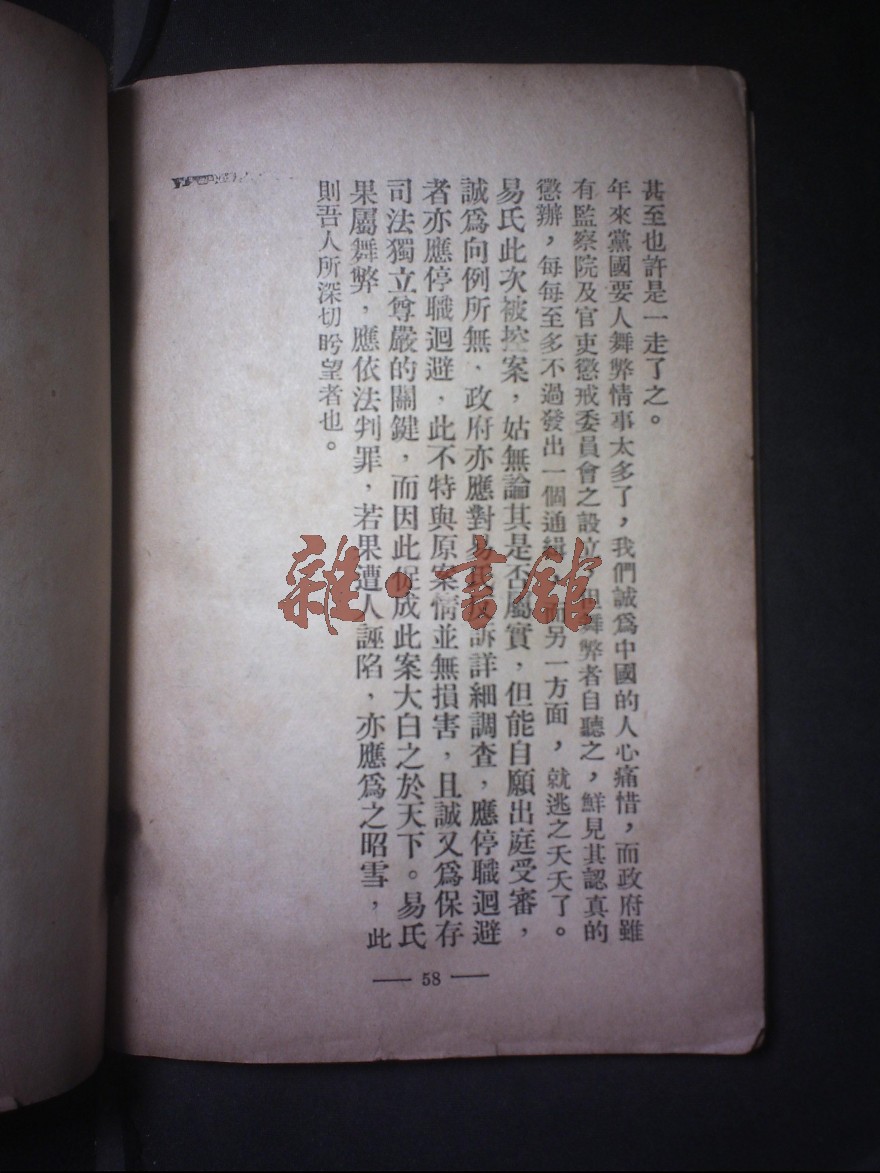 甚至也許是一走了之。
年來黨國要人舞弊情事太多了，我們誠爲中國的人心痛惜，而政府雖
有監察院及官吏懲戒委員會之設立，但舞弊者自聽之，鮮見其認真的
懲辦，每每至多不過發出一個通緝，而另一方面，就逃之夭夭了。
易氏此次被控案，姑無論其是否屬實，但能自願出庭受審，
誠爲向例所無，政府亦應對易氏反訴詳細調查，應停職迴避
者亦應停職迴避，此不特與原案情並無損害，且誠又爲保存
司法獨立尊嚴的關鍵，而因此促成此案大白之於天下。易氏
果屬舞弊，應依法判罪，若果遭人誣陷，亦應爲之昭雪，此
則吾人所深切盻望者也。
— 58 —
雜·書館